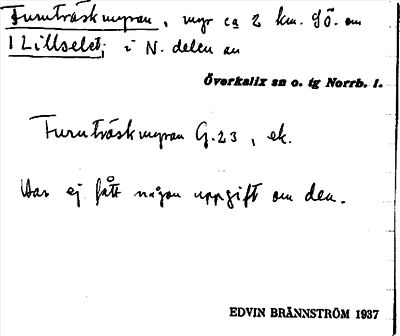 Furuträskmyran, myr ca 2 km. SÖ. om
1 Lillselet; i N. delen av
Överkalix sn o. tg Norrb. l.
Furuträskmyran G.23, ek.
Har ej fått någon uppgift om den.
EDVIN BRÄNNSTRÖM 1937